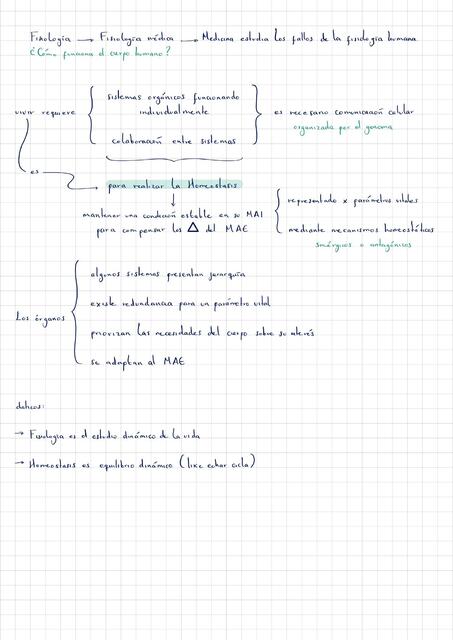 Fisiología → Fisiología médica → Medicina estudia los fallos de la fisiología humana
¿Cómo funciona el cuerpo humano?
sistemas orgánicos funcionando
individualmente
vivir requiere
es necesario comunicación celular
organizada por el genoma
colaboración entre sistemas
es
para realizar la Homeostasis
mantener una condición estable en su MAI
para compensar los Δ del MAE
representado x parámetros vitales
mediante mecanismos homeostáticos
sinérgicos o antagónicos
algunos sistemas presentan jerarquía
existe redundancia para un parámetro vital
Los órganos
priorizan las necesidades del cuerpo sobre su interés
se adaptan al MAE
daticos:
→ Fisiología es el estudio dinámico de la vida
→ Homeostasis es equilibrio dinámico (like echar cicla)